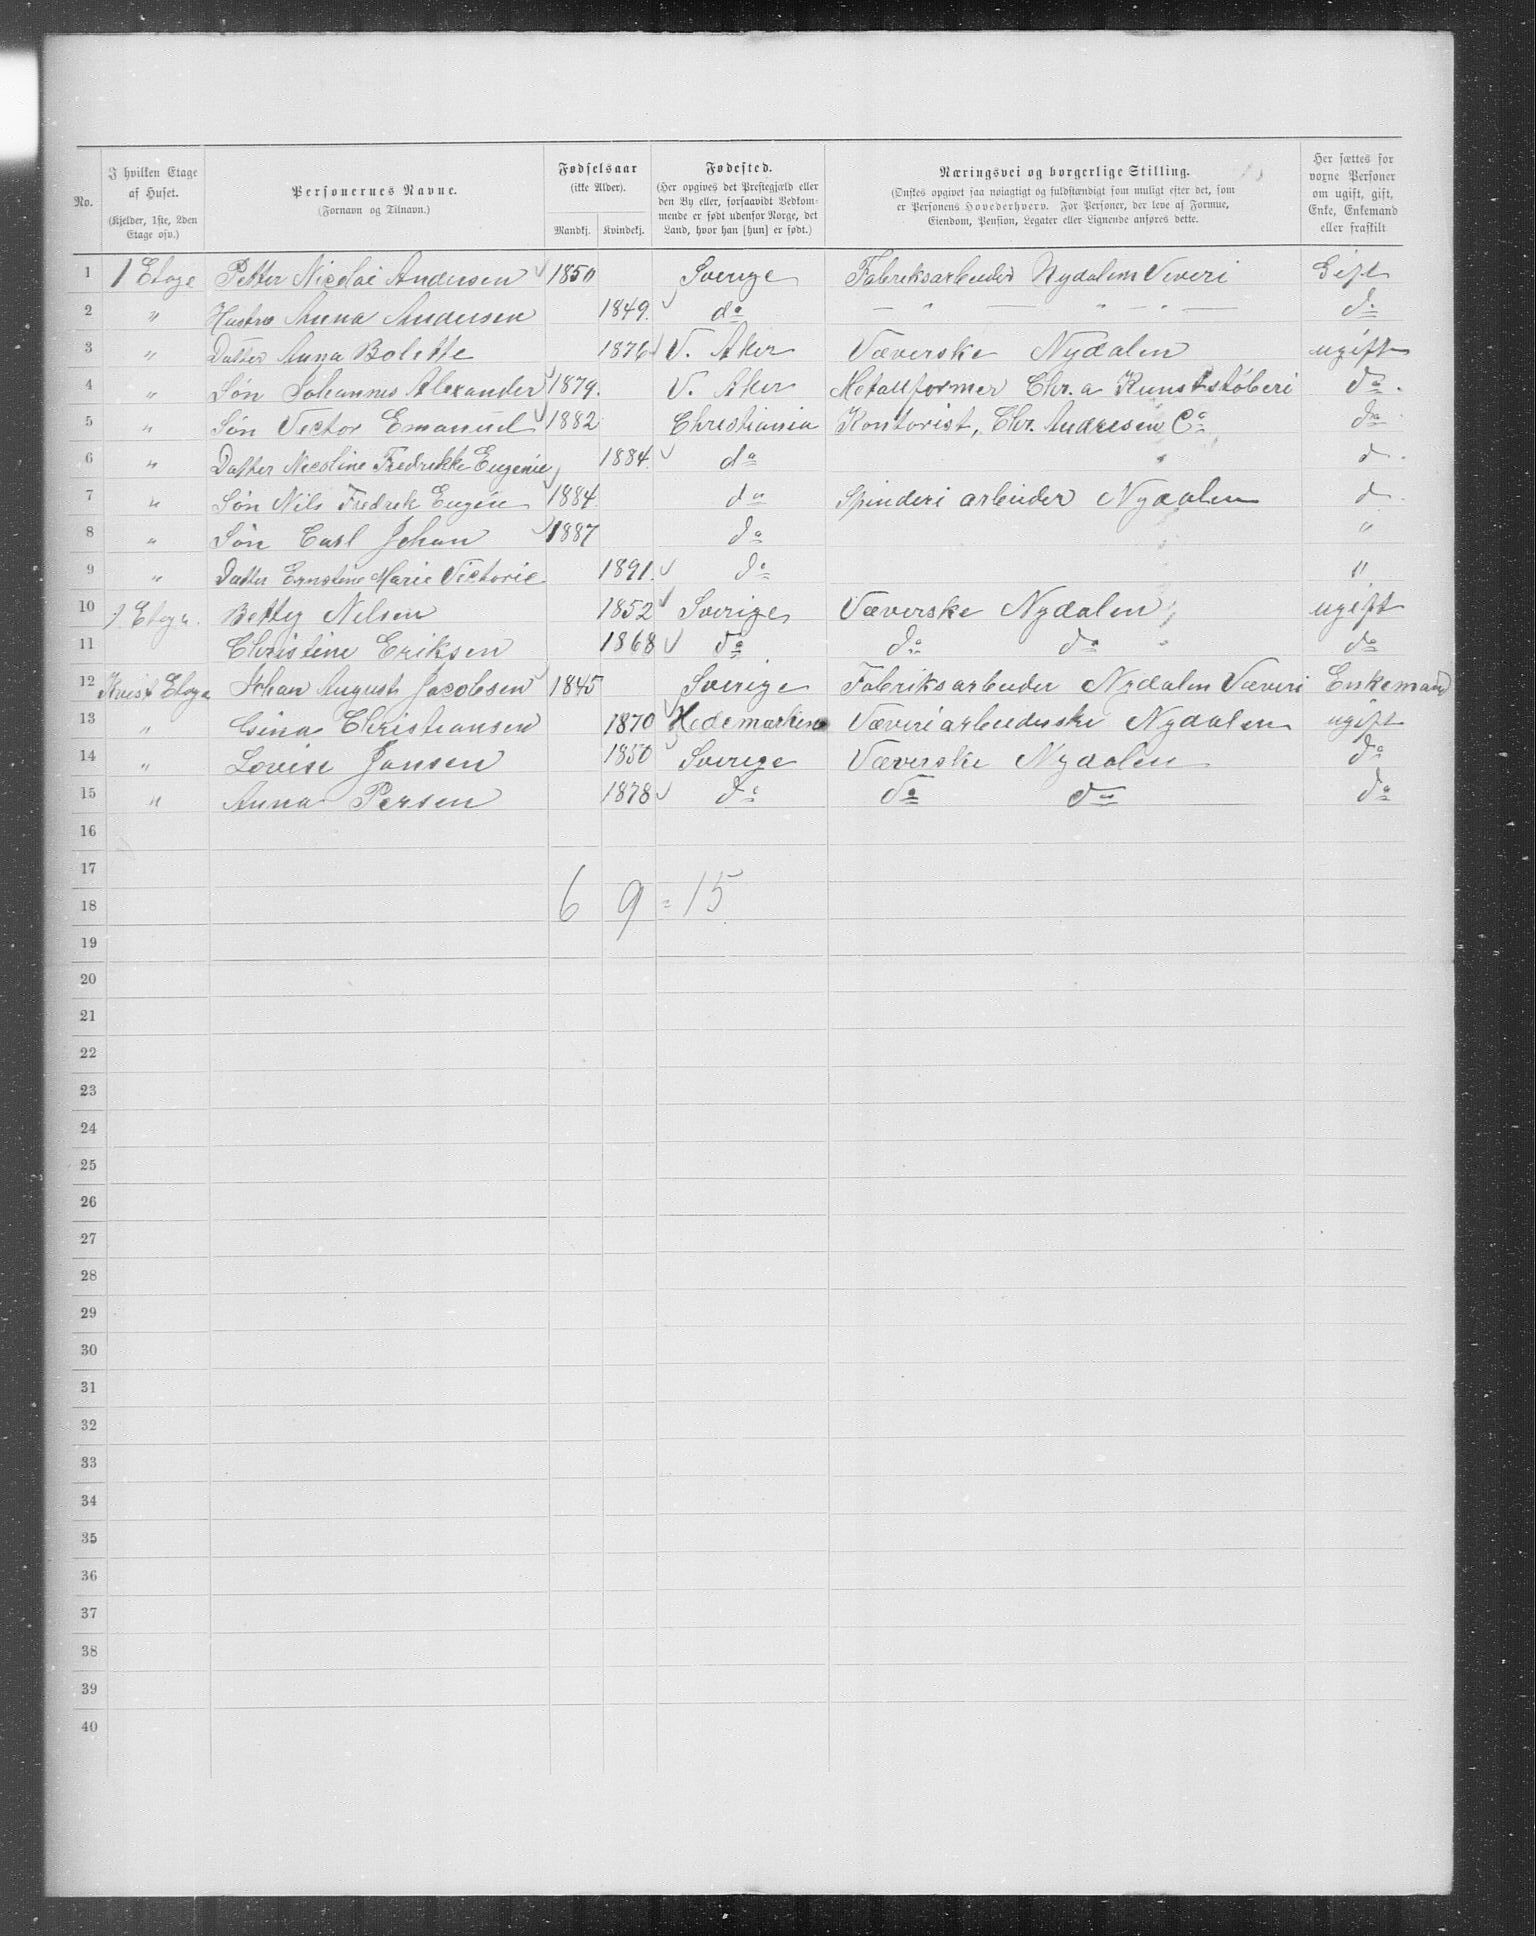 No. I hvilken Etage af Huset. (Kjelder, 1ste, 2den Etage osv.) Personernes Navne. (Fornavn og Tilnavn.) Fødselsaar (ikke Alder). Mandkj. Kvindekj. Fødested. (Her opgives det Prestegjæld eller den By eller, forsaavidt Vedkommende er født udenfor Norge, det Land, hvor han [hun] er født.) Næringsvei og borgerlige Stilling. (Ønskes opgivet saa nøiagtigt og fuldstændigt som muligt efter det, som er Personens Hovederhverv. For Personer, der leve af Formue, Eiendom, Pension, Legater eller Lignende anføres dette. Her sættes for voxne Personer om ugift, gift, Enke, Enkemand eller fraskilt
1 1 Etage Petter Nicolai Andersen 1850 Sverige Fabriksarbeider Nydalem Veveri Gift
2 " Hustru Anna Andersen 1849. do — " — " — " — do
3 " Datter Anna Bolette 1876 V. Aker Væverske Nydalen ugift
4 " Søn Johannes Alexander 1879. V. Aker Metalformer Chr.a Kunststøberi do
5 " Søn Victor Emanuel 1882 Christiania Kontorist, Chr. Andresen Co do
6 " Datter Nicoline Fredrikke Eugenie 1884. do " d
7 " Søn Nils Fredrek Eugén 1884 do Spinderi arbeider Nydalen d
8 " Søn Carl Johan 1887 do "
9 " Datter Ernstine Marie Victorie 1891. do "
10 1. Etage. Betty Nelsen 1852 Sverige Væverske Nydalen ugift
11 Christine Eriksen 1868 do do do do
12 Kvist Etage Johan August Jacobsen 1845 Sverige Fabriksarbeider Nydalen Væveri Enkemand
13 " Gina Christiansen 1870 Hedemarken Væveriarbeiderske Nydalen ugift
14 " Lovise Jansen 1850 Sverige Væverske Nydalen do
15 " Anna Persen 1878 do do do do
16
17
18 6 9 = 15
19
20
21
22
23
24
25
26
27
28
29
30
31
32
33
34
35
36
37
38
39
40